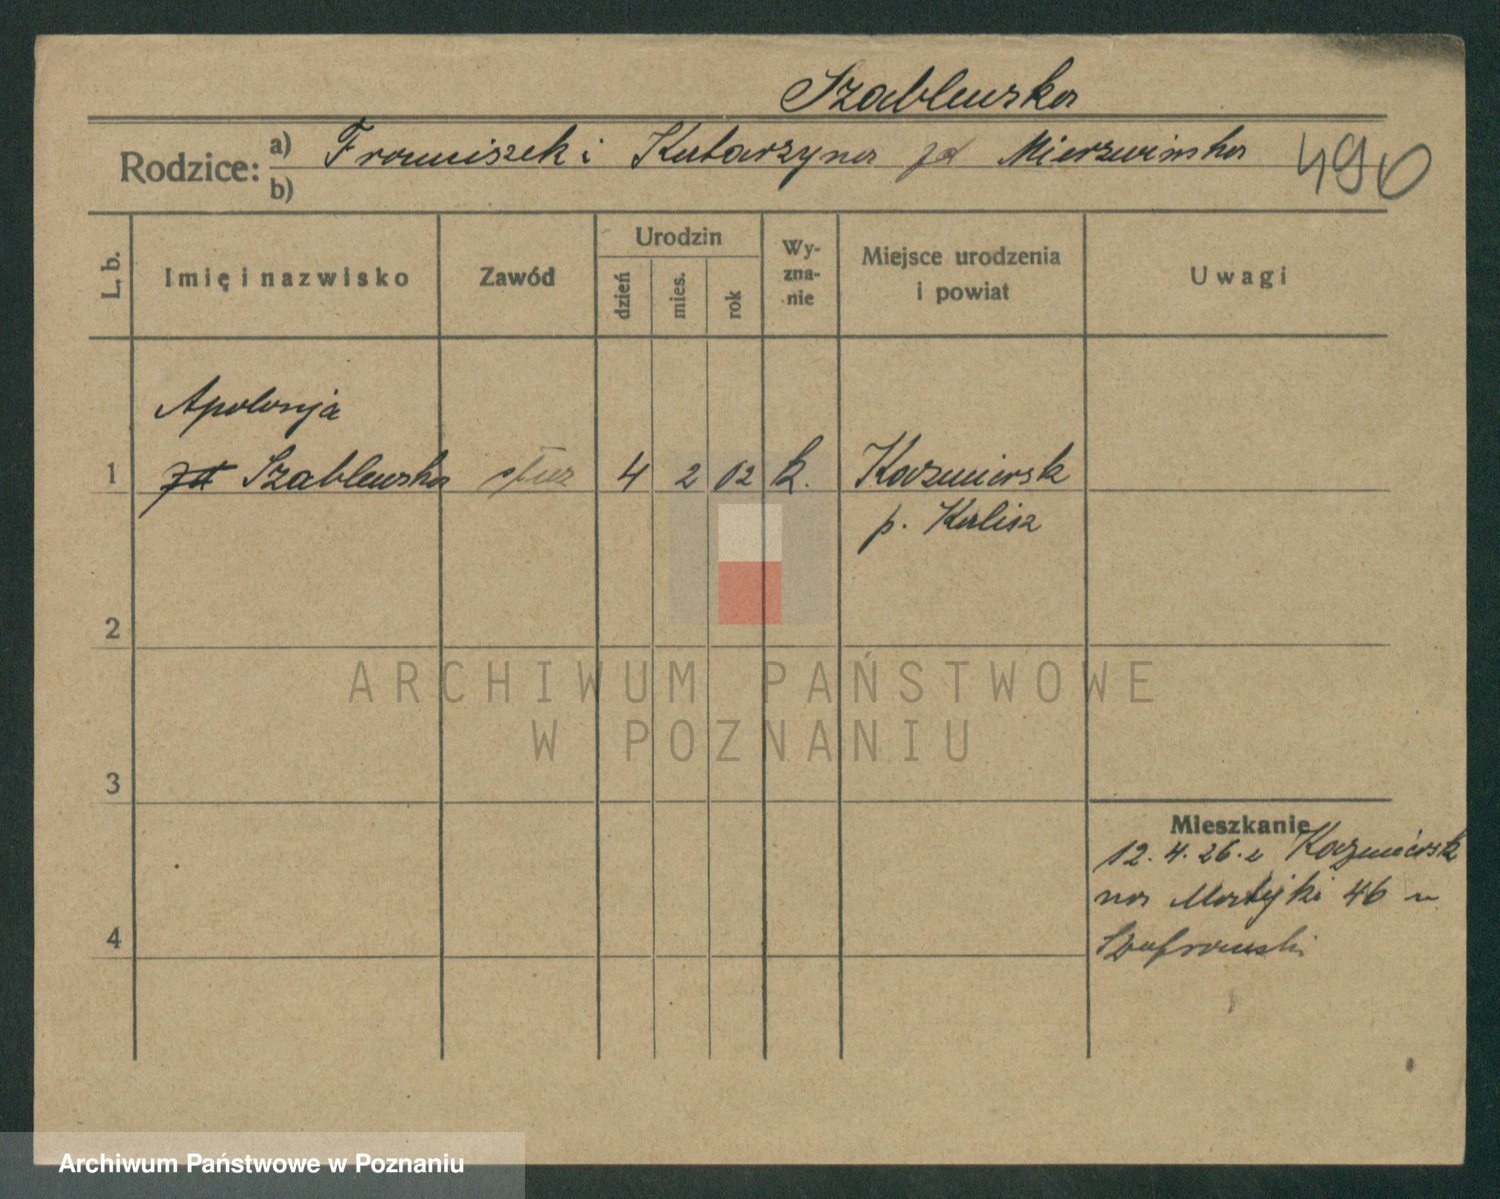 Szablewska
Rodzice:
a) Franciszek i Katarzyna zd Mierzwińska
490
b)
L. b.
Imię i nazwisko
Zawód
Urodzin
dzień
mies.
rok
Wy-
zna-
nie
Miejsce urodzenia
i powiat
Uwagi
Apolonja
1 Szablewska 4 2 02 k. Kazmiersk
p. Kalisz
2
3
4
Mieszkanie
12. 4. 26. z Kazmiersk
na 46 u
ARCHIWUM PAŃSTWOWE
W POZNANIU
Archiwum Państwowe w Poznaniu